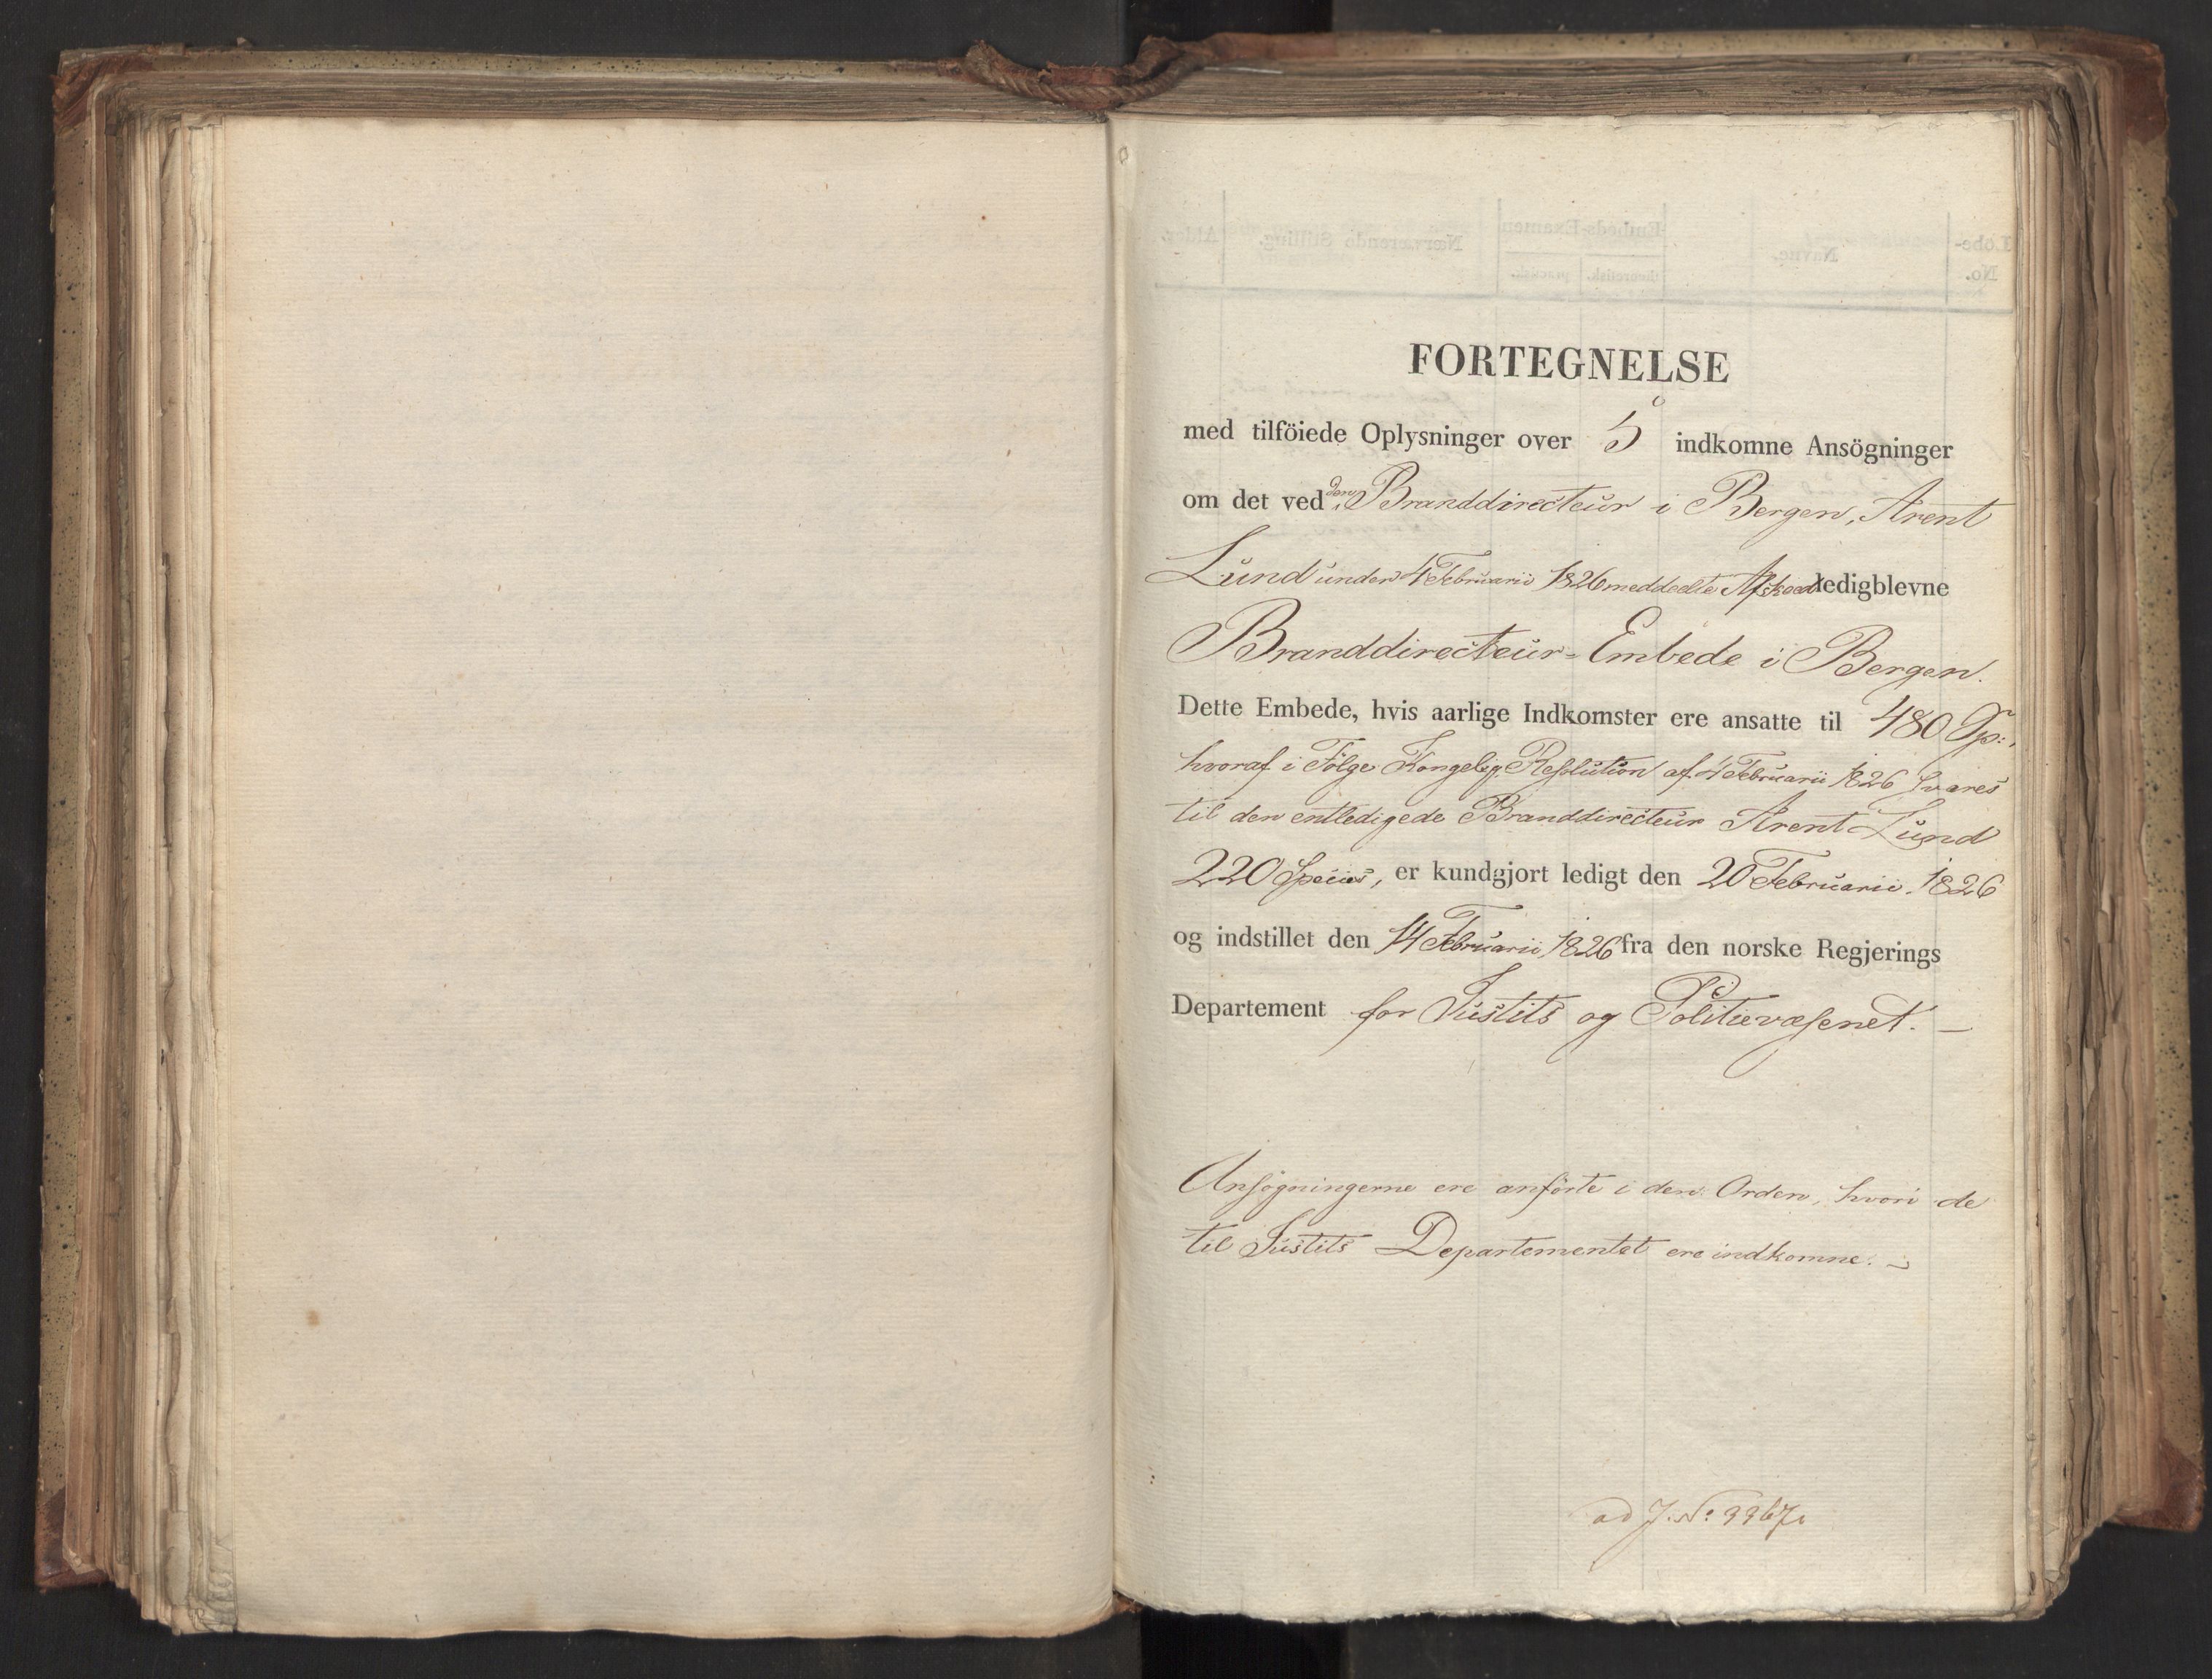 FORTEGNELSE
med tilföiede Oplysninger over 5 indkomne Ansögninger
om det ved den Branddirecteur i Bergen, Arent
Lund under 4 Februarii 1826 meddeelte Afskeed ledigblevne
Branddirecteur-Embede i Bergen.
Dette Embede, hvis aarlige Indkomster ere ansatte til 480 Sp:,
hvoraf i Følge Kongelig Resolution af 4 Februarii 1826 svares
til den entledigede Branddirecteur Arent Lund
220 Species, er kundgjort ledigt den 20 Februarii 1826
og indstillet den 14 Februarii 1826 fra den norske Regjerings
Departement for Justits og Politievæsenet. —
Ansøgningerne ere anførte i den Orden, hvori de
til Justits Departementet ere indkomne. —
ad J. No